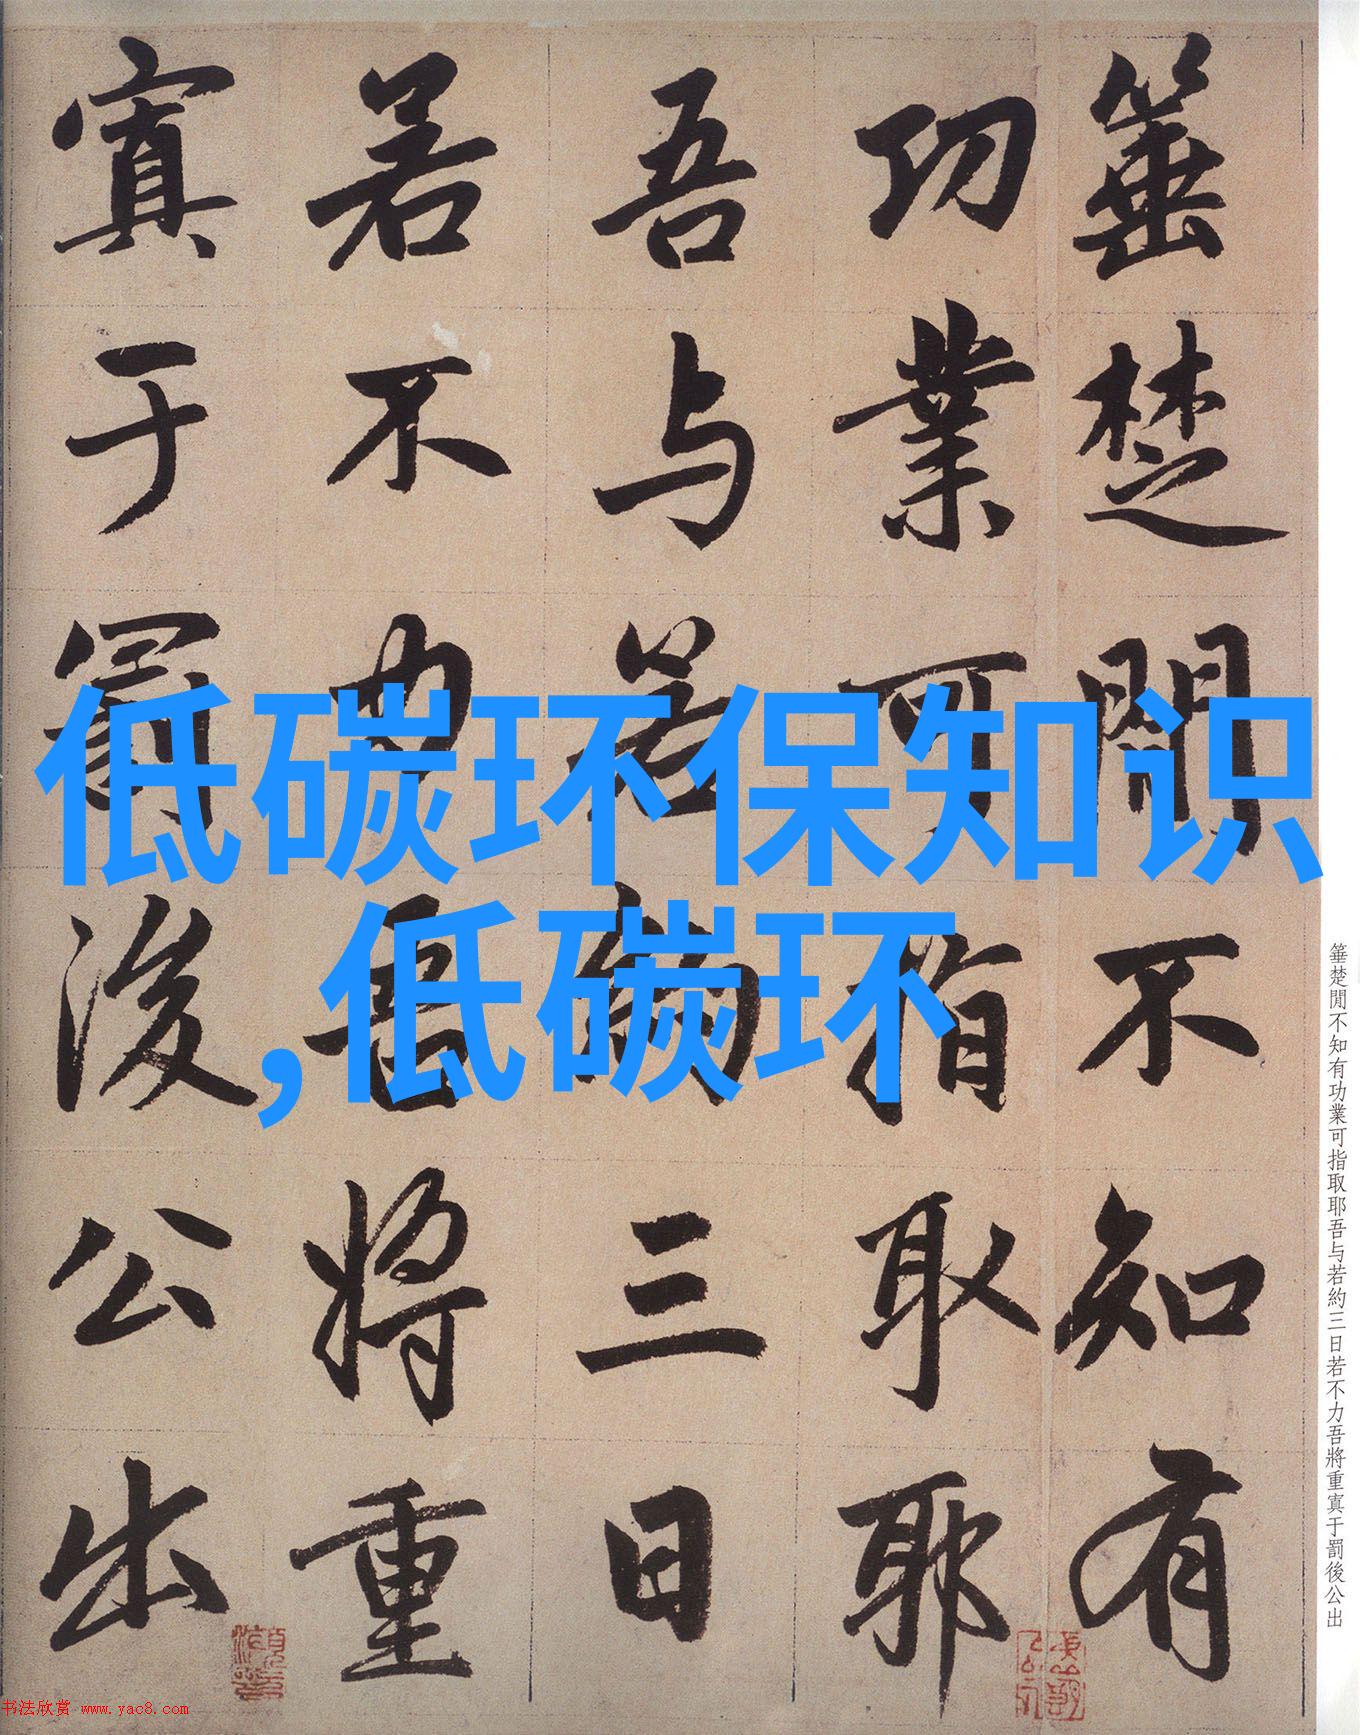 箠楚閒不知有
功業可指取耶
吾与若約三日
若不力吾將重
寘于罰後公出
低碳环保知识
,低碳环
箠楚閒不知有功業可指取耶吾与若約三日若不力吾將重寘于罰後公出
书法欣赏 www.yac8.com